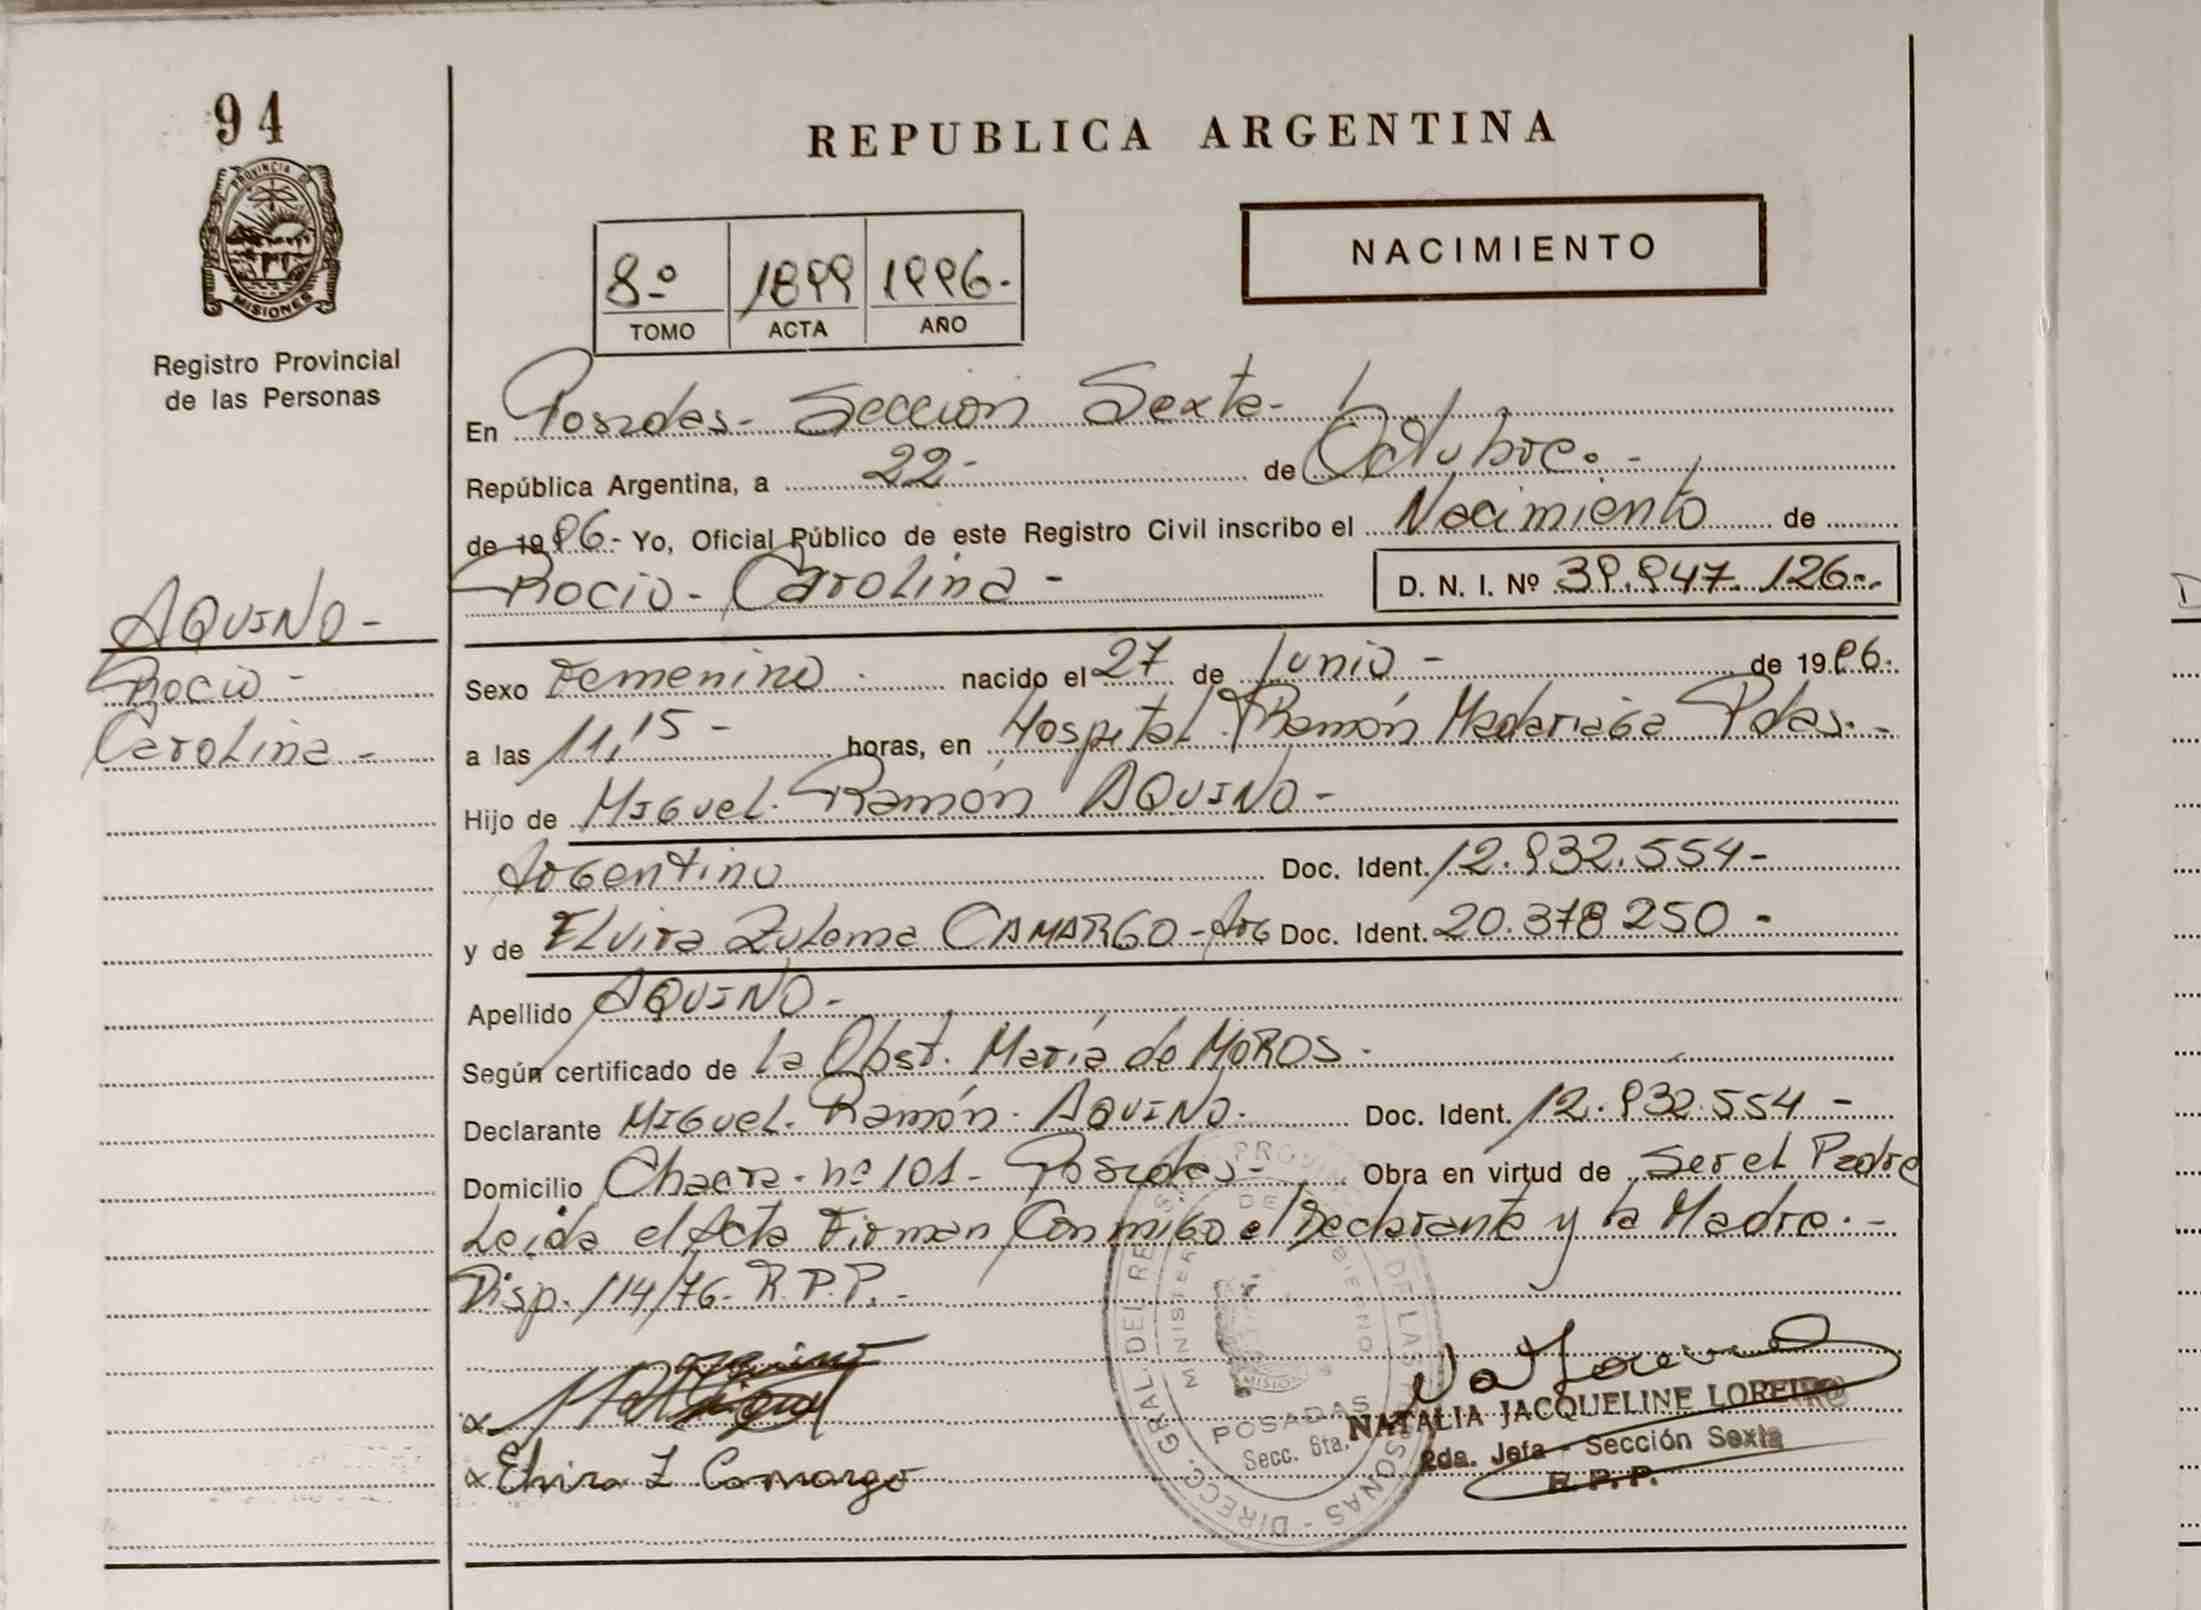 94
REPUBLICA ARGENTINA
PROVINCIA D
MISIONES
Registro Provincial
de las Personas
NACIMIENTO
8º 1899 1996.-
TOMO ACTA AÑO
En Posadas- Sección Sexta-
República Argentina, a 22- de Octubre.-
de 1996.- Yo, Oficial Público de este Registro Civil inscribo el Nacimiento de
Rocio- Carolina- D. N. I. Nº 39.947.126-.
AQUINO-
Rocio-
Carolina-
Sexo Femenino nacido el 27 de Junio- de 1996.
a las 11,15- horas, en Hospital Ramón Madariaga Pdas.-
Hijo de Miguel Ramón AQUINO-
Argentino Doc. Ident. 12.932.554-
y de Elvira Zulema CAMARGO-Arg Doc. Ident. 20.378250-
Apellido AQUINO-
Según certificado de la Obst. María de MOROS.
Declarante Miguel Ramón AQUINO. Doc. Ident. 12.932.554-
Domicilio Chacra-nº101- Posadas- Obra en virtud de Ser el Padre
Leida el Acta Firman Conmigo el Declarante y la Madre.-
Disp. 114/76- R.P.P.-
Elvira Z Camargo
NATALIA JACQUELINE LOREIRO
2da. Jefa - Sección Sexta
R.P.P.
POSADAS
Secc. 6ta.